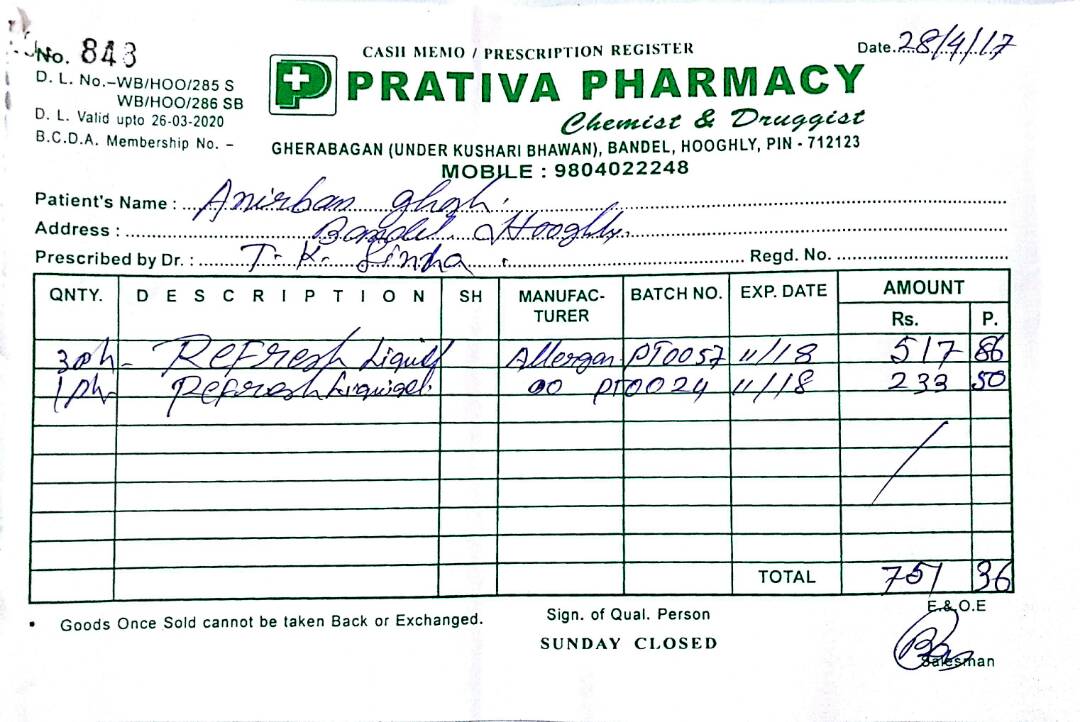 No. 843
CASH MEMO / PRESCRIPTION REGISTER
Date. 28/4/17
D. L. No.–WB/HOO/285 S
WB/HOO/286 SB
D. L. Valid upto 26-03-2020
B.C.D.A. Membership No. –
P PRATIVA PHARMACY
Chemist & Druggist
GHERABAGAN (UNDER KUSHARI BHAWAN), BANDEL, HOOGHLY, PIN - 712123
MOBILE : 9804022248
Patient's Name : Anirban Ghosh.
Address : Bandel Hooghly.
Prescribed by Dr. : T. K. Sinha. Regd. No.
QNTY. DESCRIPTION SH MANUFAC-TURER BATCH NO. EXP. DATE AMOUNT
Rs. P.
Refresh Liquid Allergan PT0057 11/18 517 86
Refresh Liquigel. PT0024 11/18 233 50
TOTAL 751 36
E.&.O.E
• Goods Once Sold cannot be taken Back or Exchanged.
Sign. of Qual. Person
SUNDAY CLOSED
Salesman